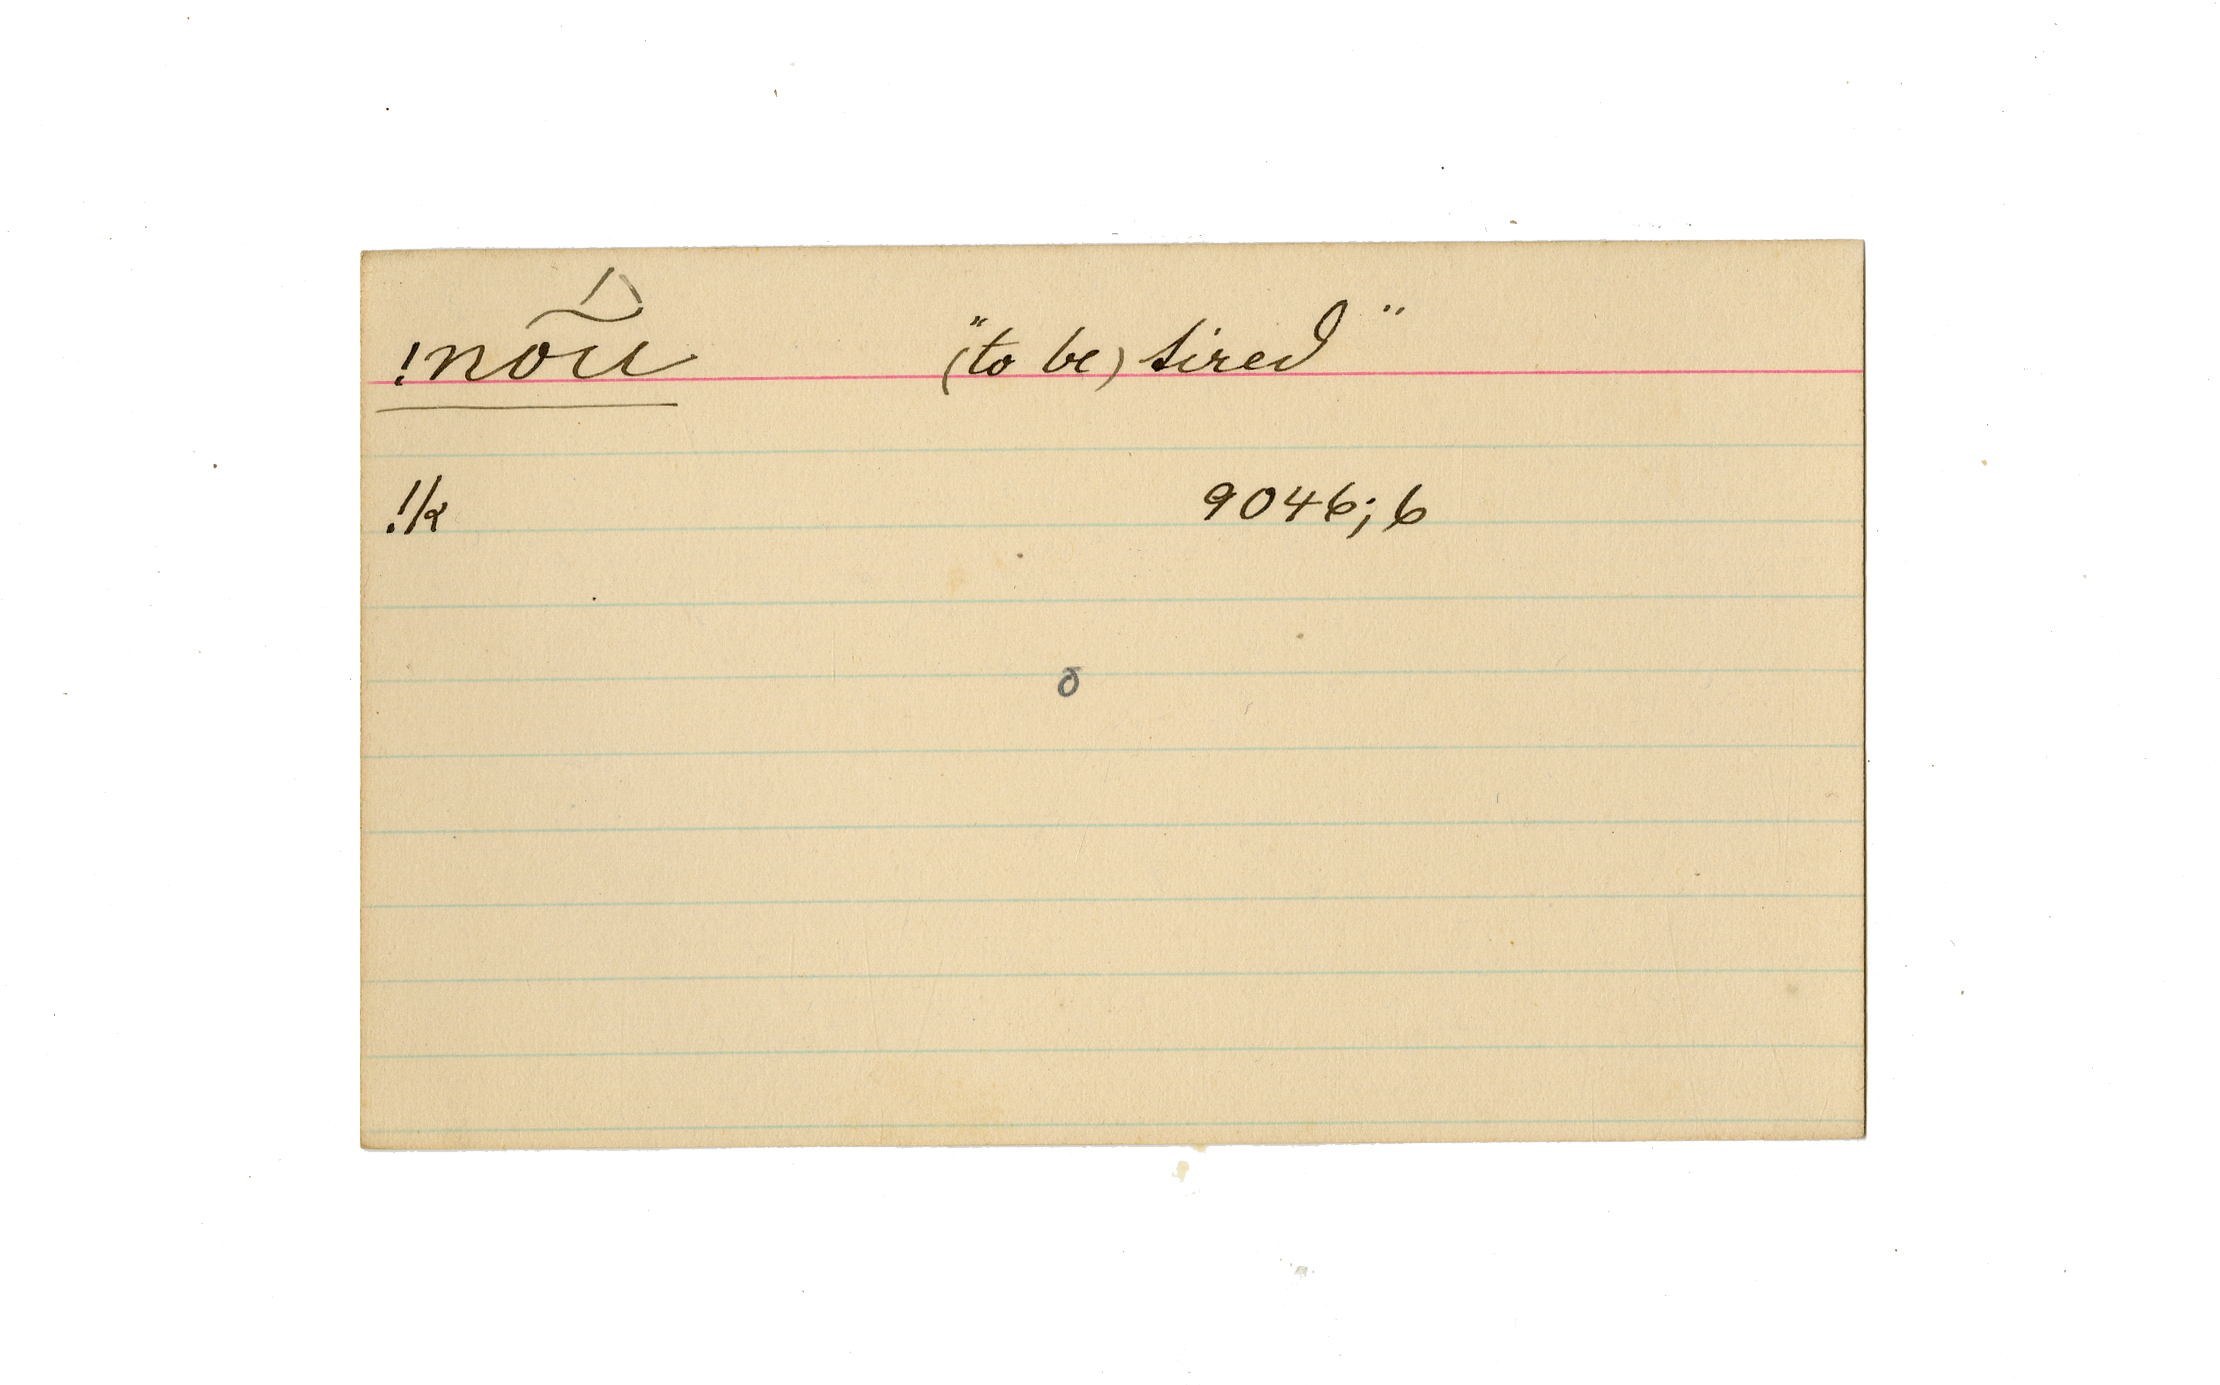 !nõũ "(to be) tired"
!k 9046; 6
ō